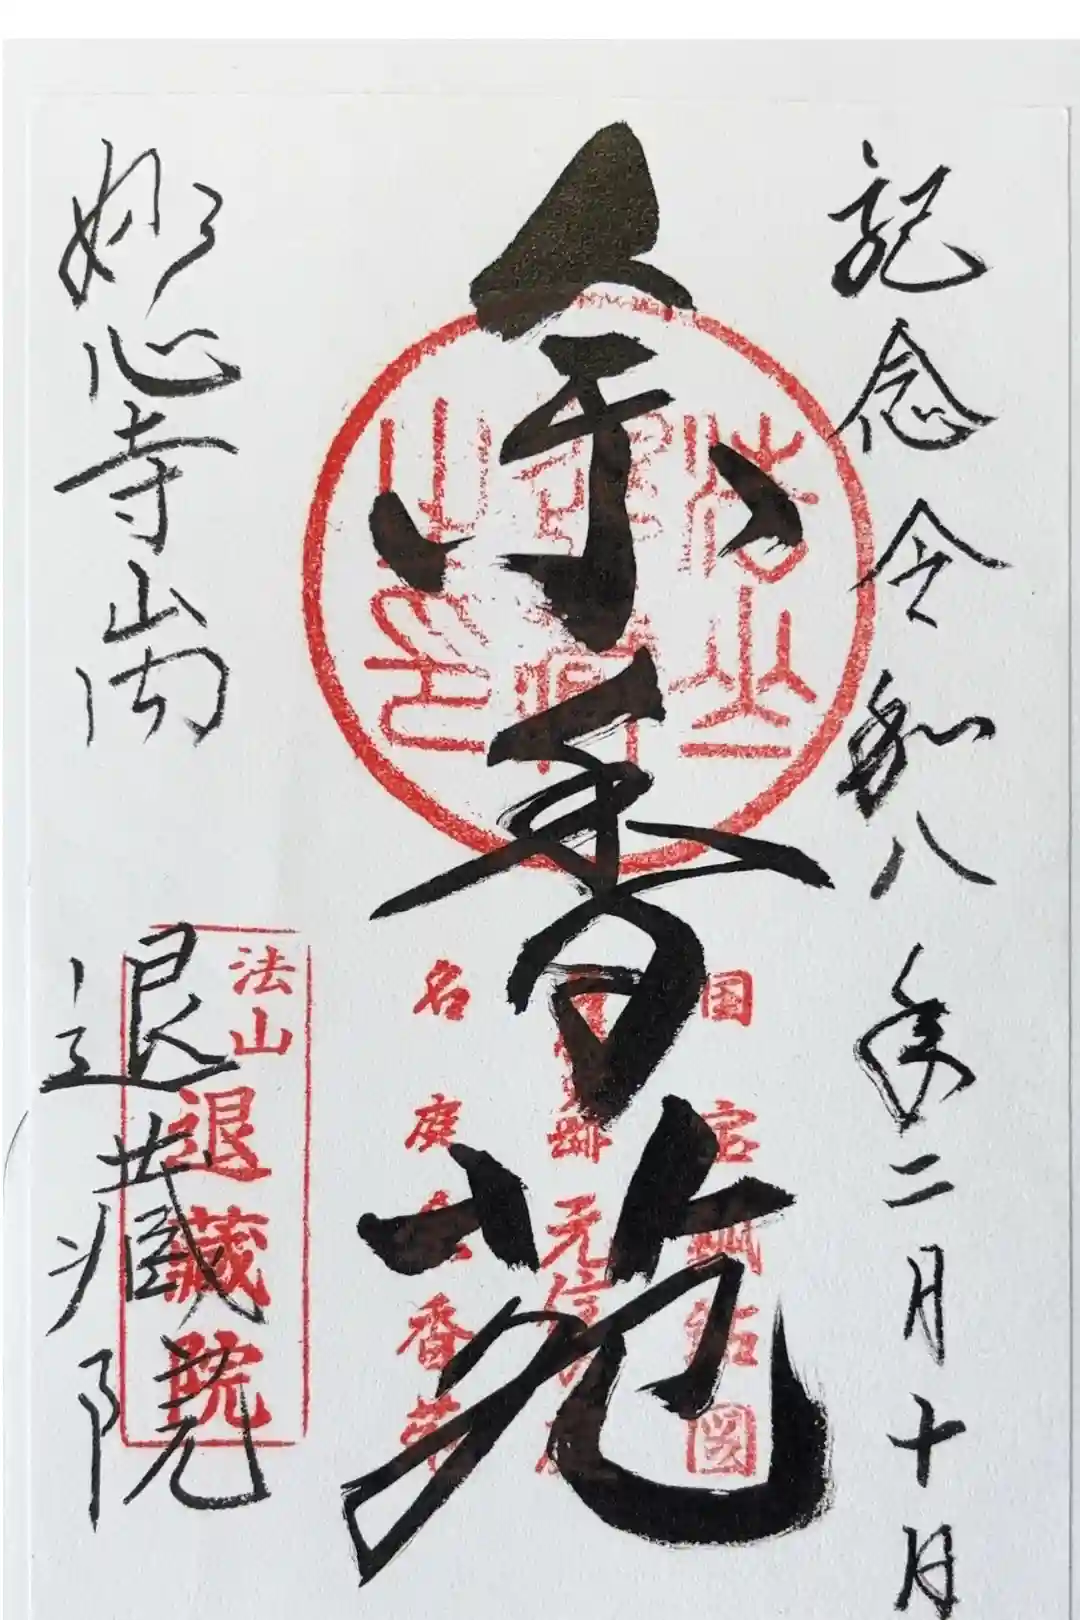 記念 令和八年二月十日
余香苑
国宝瓢鮎図
跡 元信の庭
名庭余香苑
妙心寺山内
退蔵院
法山
退蔵院